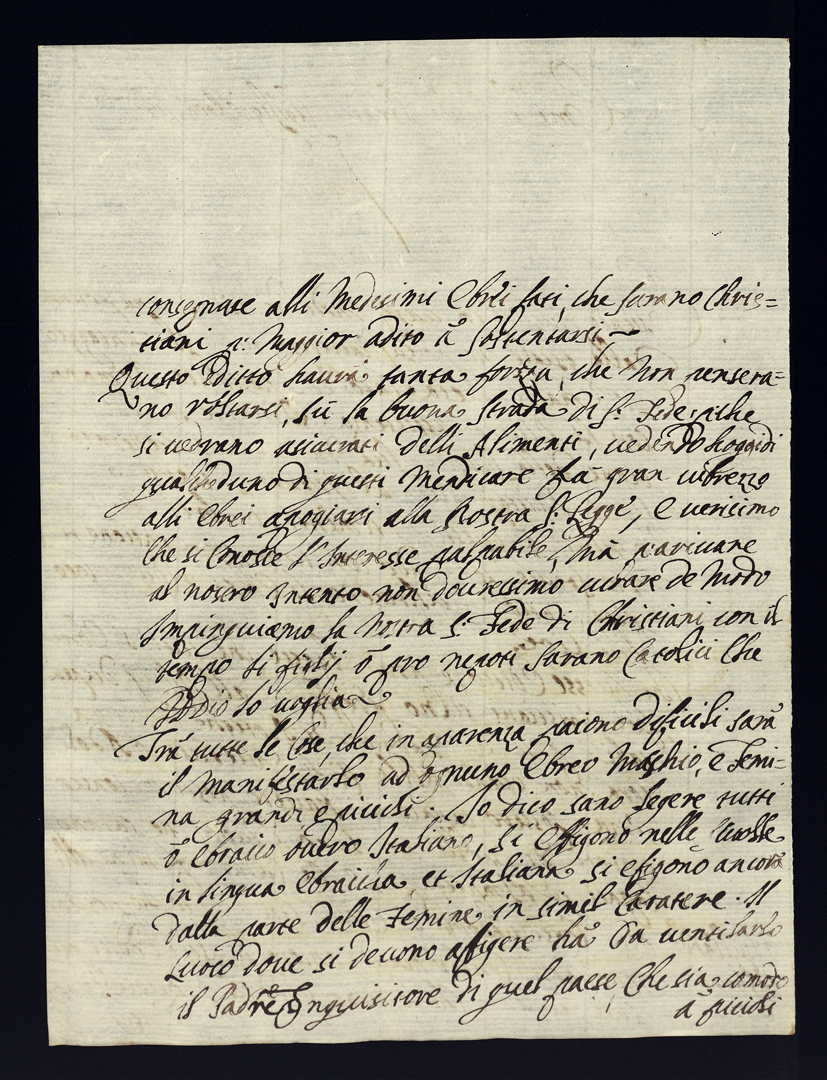 consegnare alli Medesimi Ebrei fati, che sarano Chris=
tiani p: Maggior adito à sostentarsi
Questo Editto haurà tanta forza, che Non pensera=
no voltarsi, sù la buona strada di S: Fede: p che
si vedrano asicurati delli Alimenti, vedendo hoggidi
qualcheduno di questi Mendicare fà gran ribrezzo
alli Ebrei apogiarsi alla Nostra S: Legge, e verisimo
Che si Conosce l'Interesse palpabile, Mà p arivare
al nostro Intento non douressimo mirare de Modo
Impinguiamo la Nostra S: Fede di Christiani con il
tempo li figlij ò pro nepoti sarano Catolici Che
Iddio lo voglia
Trà tutte le Cose, che in aparenza paiono dificili sarà
il Manifestarlo ad ognuno Ebreo Maschio, e Femi=
na grandi e picioli. Io dico sano legere tutti
ò Ebraico overo Italiano, si Effigono nelle Scolle
in lingua Ebraicha et Italiana si efigono ancora
dalla parte delle Femine in simil Caratere. Il
Luoco dove si devono affigere hà Da ventilarlo
il Padre Inquisitore di quel paese Che sia comodo
à picioli